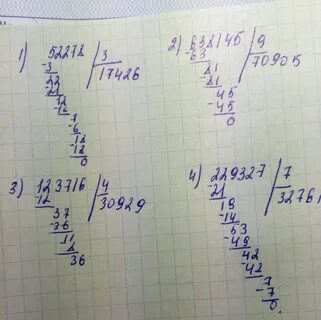 1) 52278 | 3
-3 17426
22
-21
12
-12
7
-6
18
-18
0
2) 638145 | 9
63 70905
81
-81
45
-45
0
3) 123716 | 4
-12 30929
37
-36
11
8
36
4) 229327 | 7
-21 32761
19
-14
53
-49
42
-42
7
-7
0.